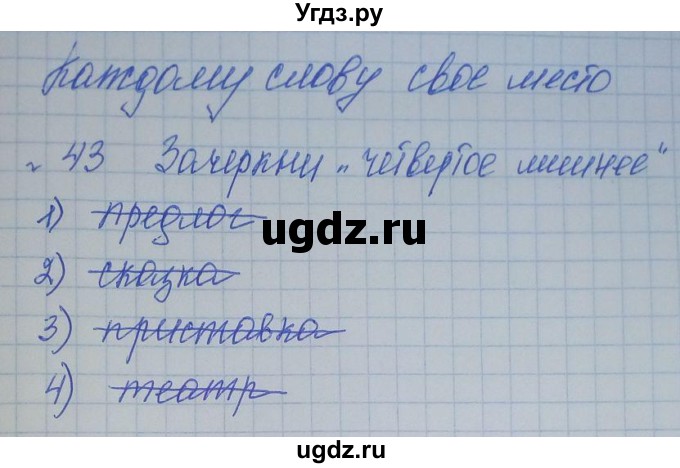 Угдз.ру
Каждому слову свое место
~ 43 Зачеркни „четвертое лишнее"
1) предлог
ugdz.ru
2) сказка
3) приставка
4) театр
ugdz.ru